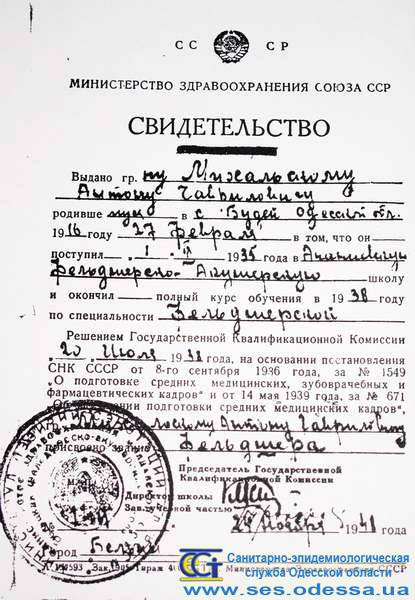 СС СР
МИНИСТЕРСТВО ЗДРАВООХРАНЕНИЯ СОЮЗА ССР
СВИДЕТЕЛЬСТВО
Выдано гр. ну Михальскому
Антону Гавриловичу
родивше муся в с. Будей Одесской обл.
1916 году 27 февраля в том, что он
поступил 1 IX 1935 года в Ананьевскую
Фельдшерско-Акушерскую школу
и окончил полный курс обучения в 1938 году
по специальности Фельдшерской
Решением Государственной Квалификационной Комиссии
20 Июля 1938, на основании постановления
СНК СССР от 8-го сентября 1936 года, за № 1549
„О подготовке средних медицинских, зубоврачебных и
фармацевтических кадров“ и от 14 мая 1939 года, за № 671
подготовки средних медицинских кадров“,
Антону Гавриловичу
присвоено звание Фельдшера
Председатель Государственной
Квалификационной Комиссии
Директор школы
Зав. учебной частью
24 ноября 1941
Город
Тираж
Санитарно-эпидемиологическая
служба Одесской области
www.ses.odessa.ua